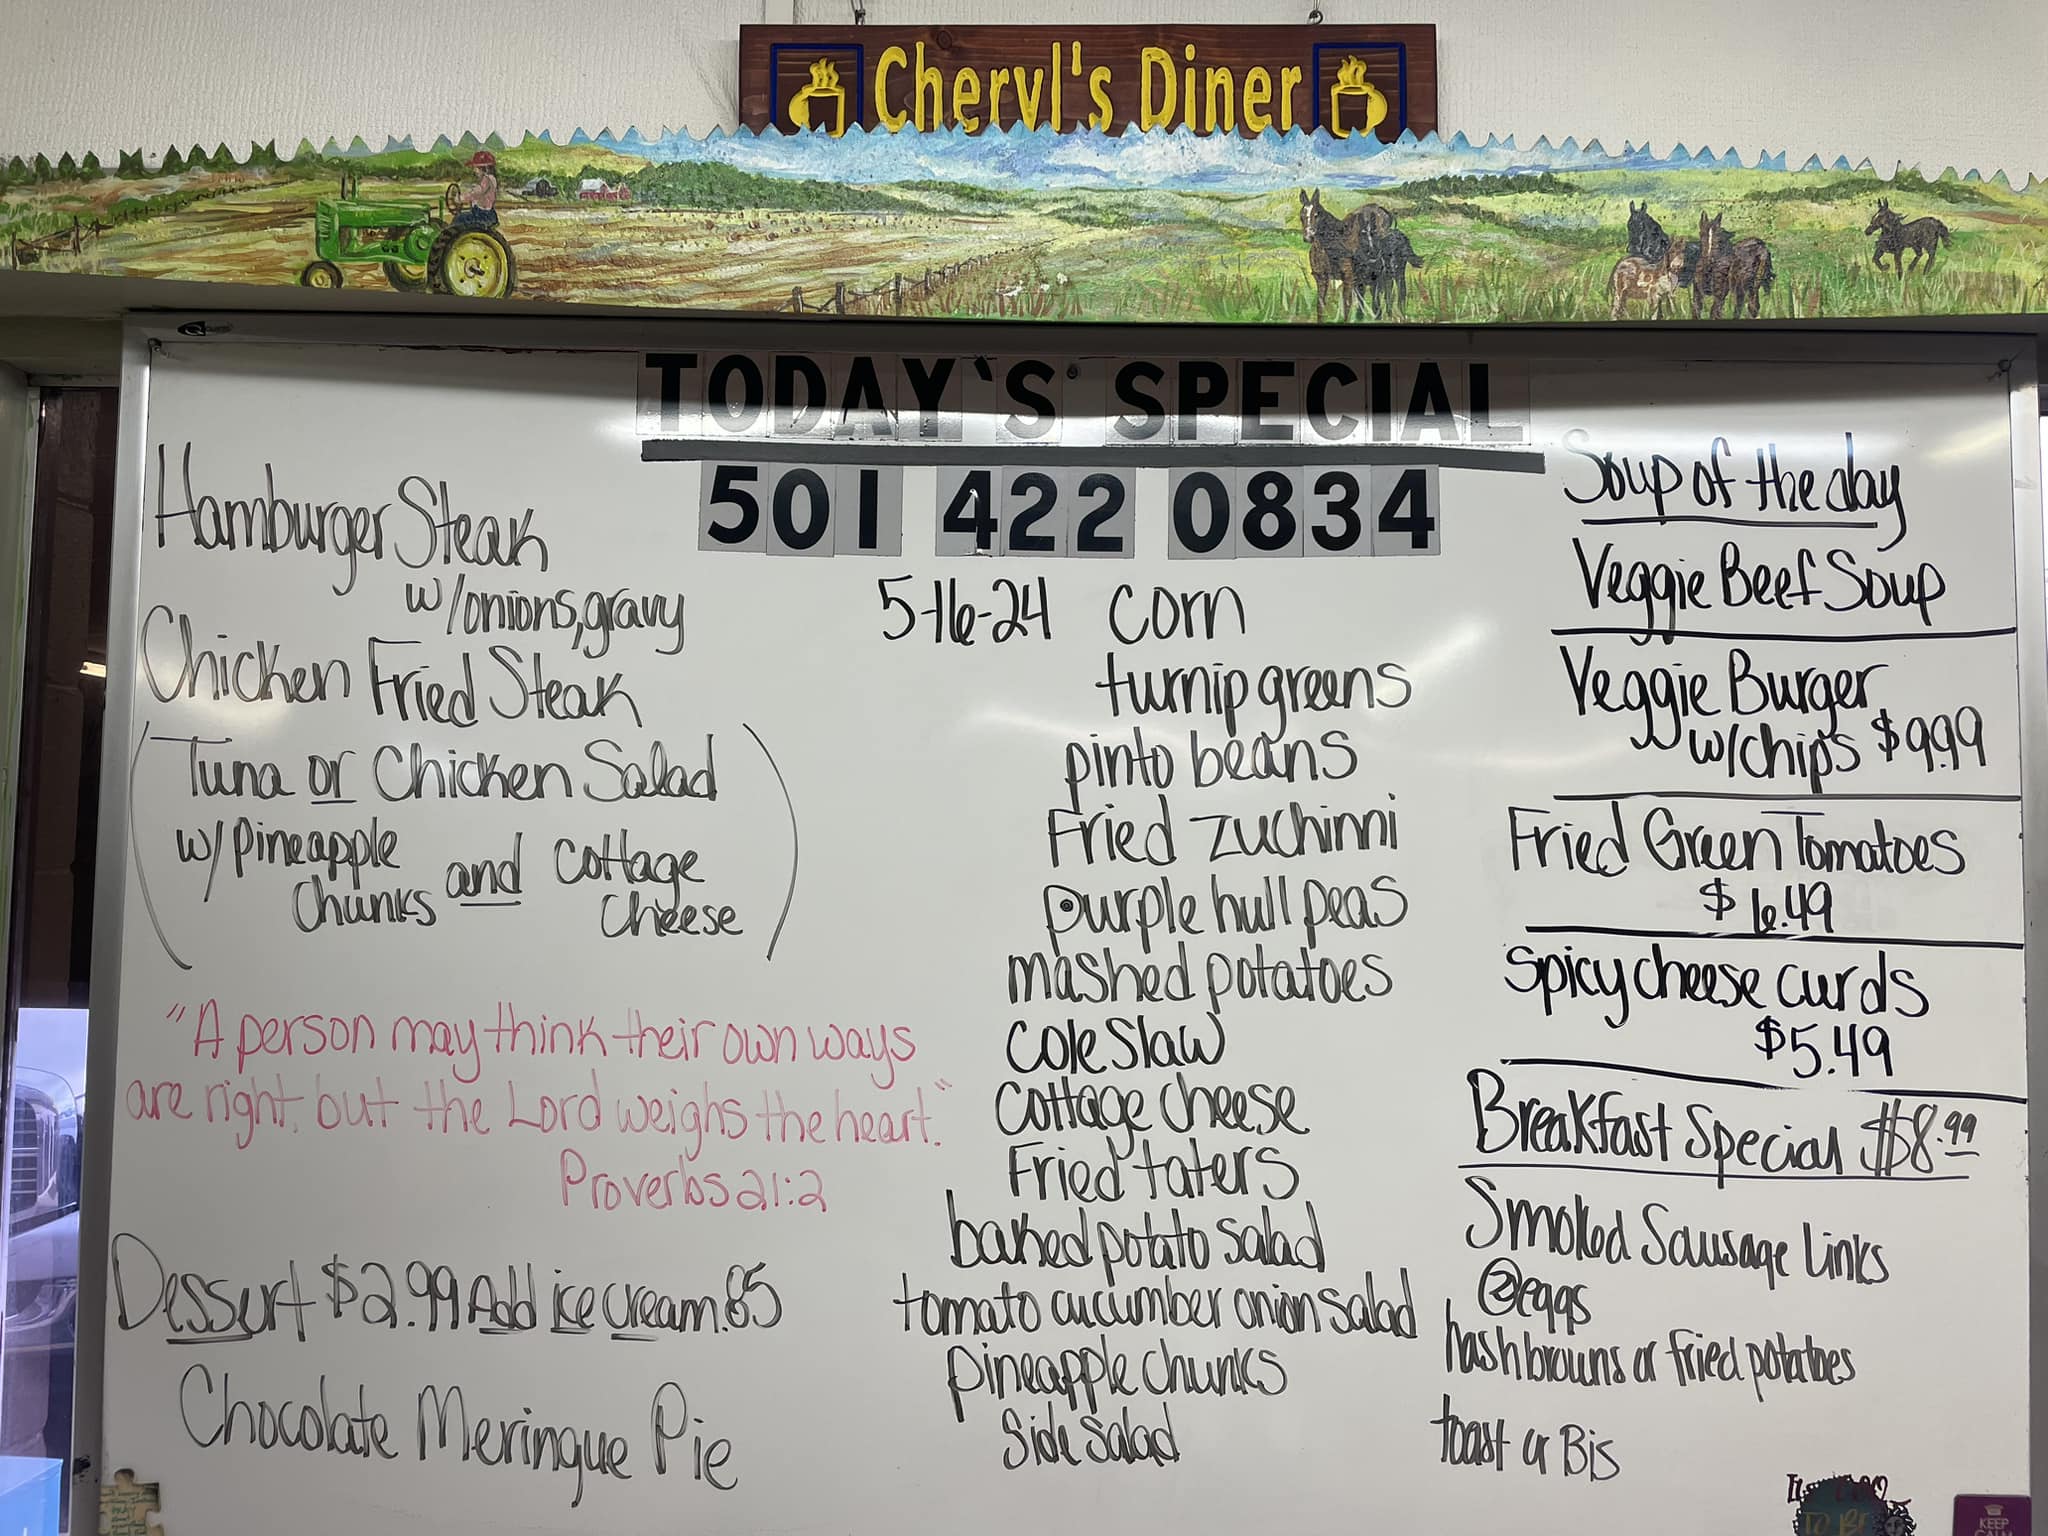 Cheryl's Diner
TODAY'S SPECIAL
501 422 0834
5-16-24
Hamburger Steak
w/onions, gravy
Chicken Fried Steak
(Tuna or Chicken Salad
w/pineapple chunks and cottage cheese)
"A person may think their own ways
are right, but the Lord weighs the heart."
Proverbs 21:2
Dessert $2.99 Add ice cream .85
Chocolate Meringue Pie
corn
turnip greens
pinto beans
Fried zuchinni
purple hull peas
mashed potatoes
cole slaw
cottage cheese
Fried taters
baked potato salad
tomato cucumber onion salad
pineapple chunks
side salad
Soup of the day
Veggie Beef Soup
Veggie Burger
w/chips $9.99
Fried Green Tomatoes
$6.49
spicy cheese curds
$5.49
Breakfast Special $8.99
Smoked Sausage links
② eggs
hashbrowns or fried potatoes
toast or Bis
KEEP